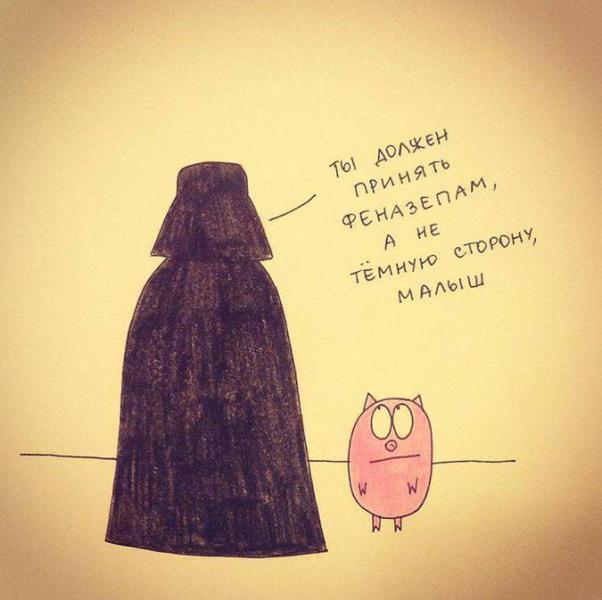 ТЫ ДОЛЖЕН
ПРИНЯТЬ
ФЕНАЗЕПАМ,
А НЕ
ТЁМНУЮ СТОРОНУ,
МАЛЫШ